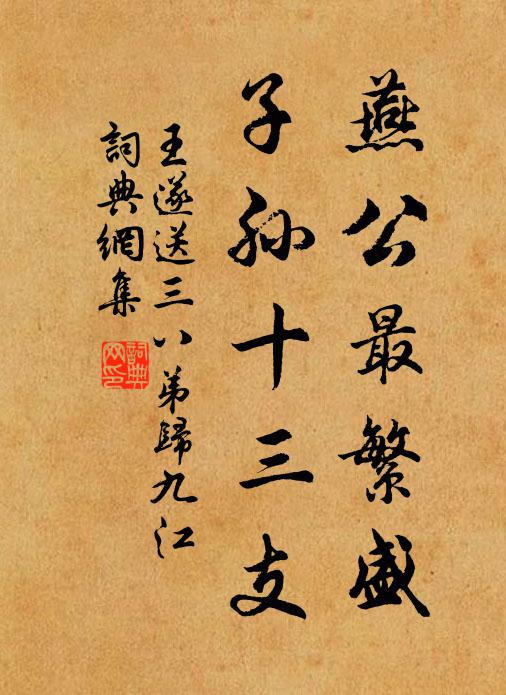 燕公最繁盛
子孫十三支
王遂送三八弟歸九江
詞典網集
詞典網印